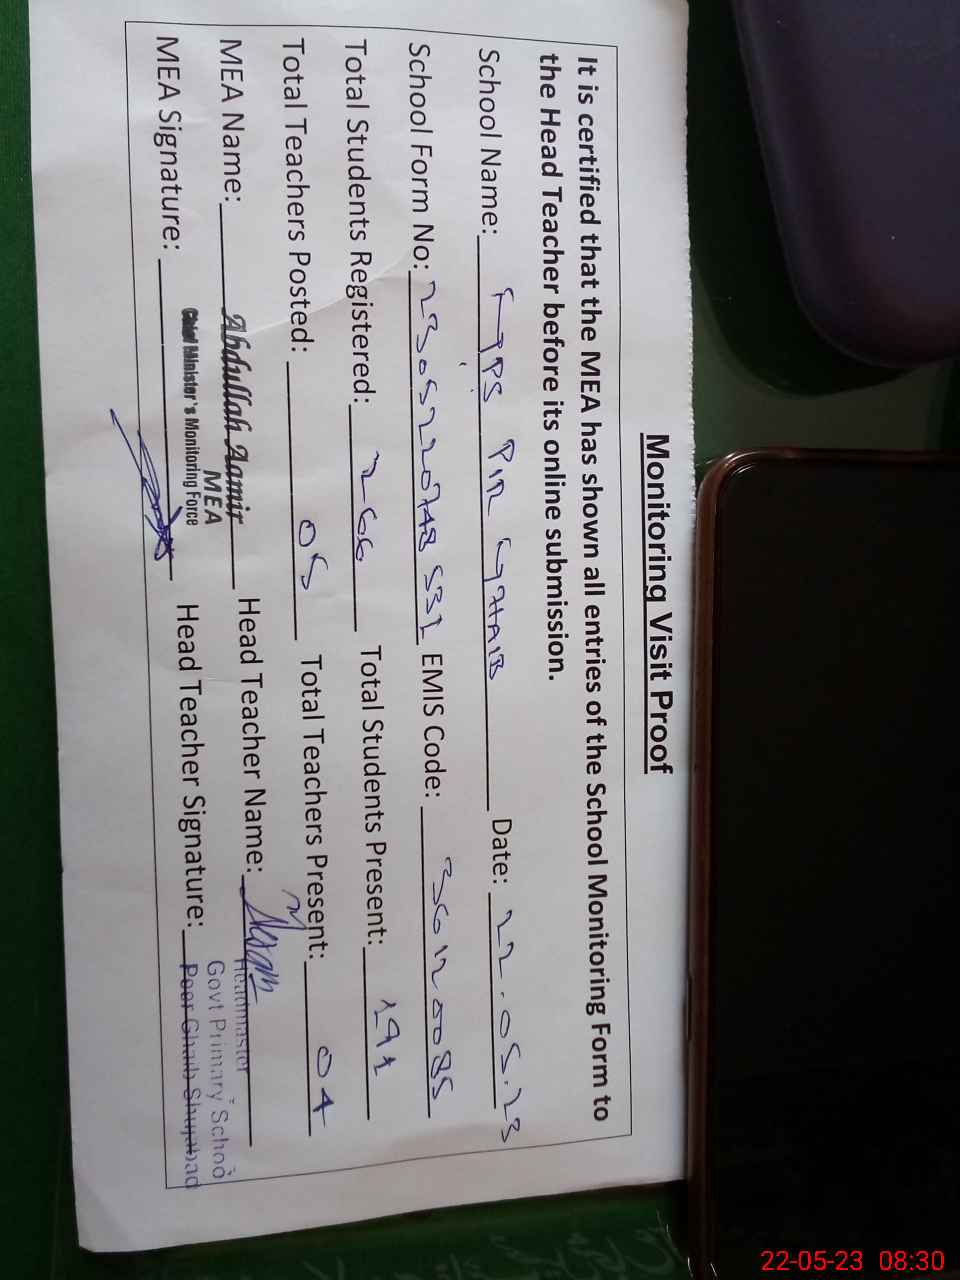 Monitoring Visit Proof
It is certified that the MEA has shown all entries of the School Monitoring Form to
the Head Teacher before its online submission.
School Name: GPS PIR GHAIB Date: 22.05.23
School Form No: 2305220748531 EMIS Code: 36120085
Total Students Registered: 266 Total Students Present: 191
Total Teachers Posted: 05 Total Teachers Present: 04
MEA Name: Abdullah Aamir Head Teacher Name:
MEA
Chief Minister's Monitoring Force
MEA Signature: Head Teacher Signature:
Headmaster
Govt Primary School
Peer Ghaib Shujabad
22-05-23 08:30